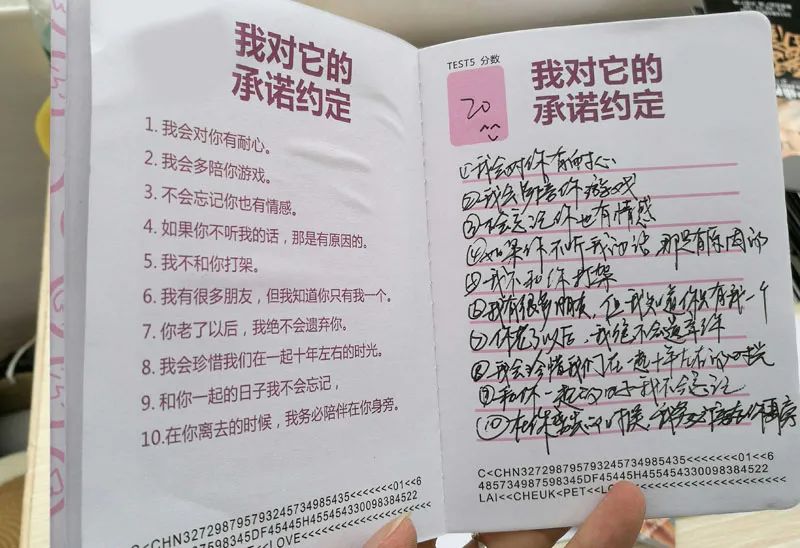 我对它的
承诺约定
1. 我会对你有耐心。
2. 我会多陪你游戏。
3. 不会忘记你也有情感。
4. 如果你不听我的话，那是有原因的。
5. 我不和你打架。
6. 我有很多朋友，但我知道你只有我一个。
7. 你老了以后，我绝不会遗弃你。
8. 我会珍惜我们在一起十年左右的时光。
9. 和你一起的日子我不会忘记，
10.在你离去的时候，我务必陪伴在你身旁。
C<CHN327298795793245734985435<<<<<<<01<<6
485734987598345DF45445H455454330098384522
<<LOVE<<<<<<<<<<<<<<<<<<<<
TEST5 分数
20
我对它的
承诺约定
①我会对你有耐心
②我会多陪你游戏
③不会忘记你也有情感
④如果你不听我的话，那是有原因的
⑤我不和你打架
⑥我有很多朋友，但我知道你只有我一个
⑦你老了以后，我绝不会遗弃你
⑧我会珍惜我们在一起十年左右的时光
⑨和你一起的日子我不会忘记
⑩在你离去的时候，我务必陪伴在你身旁
C<CHN327298795793245734985435<<<<<<<01<<6
485734987598345DF45445H455454330098384522
LAI<<CHEUK<PET<<LOVE<<<<<<<<<<<<<<<<<<<<